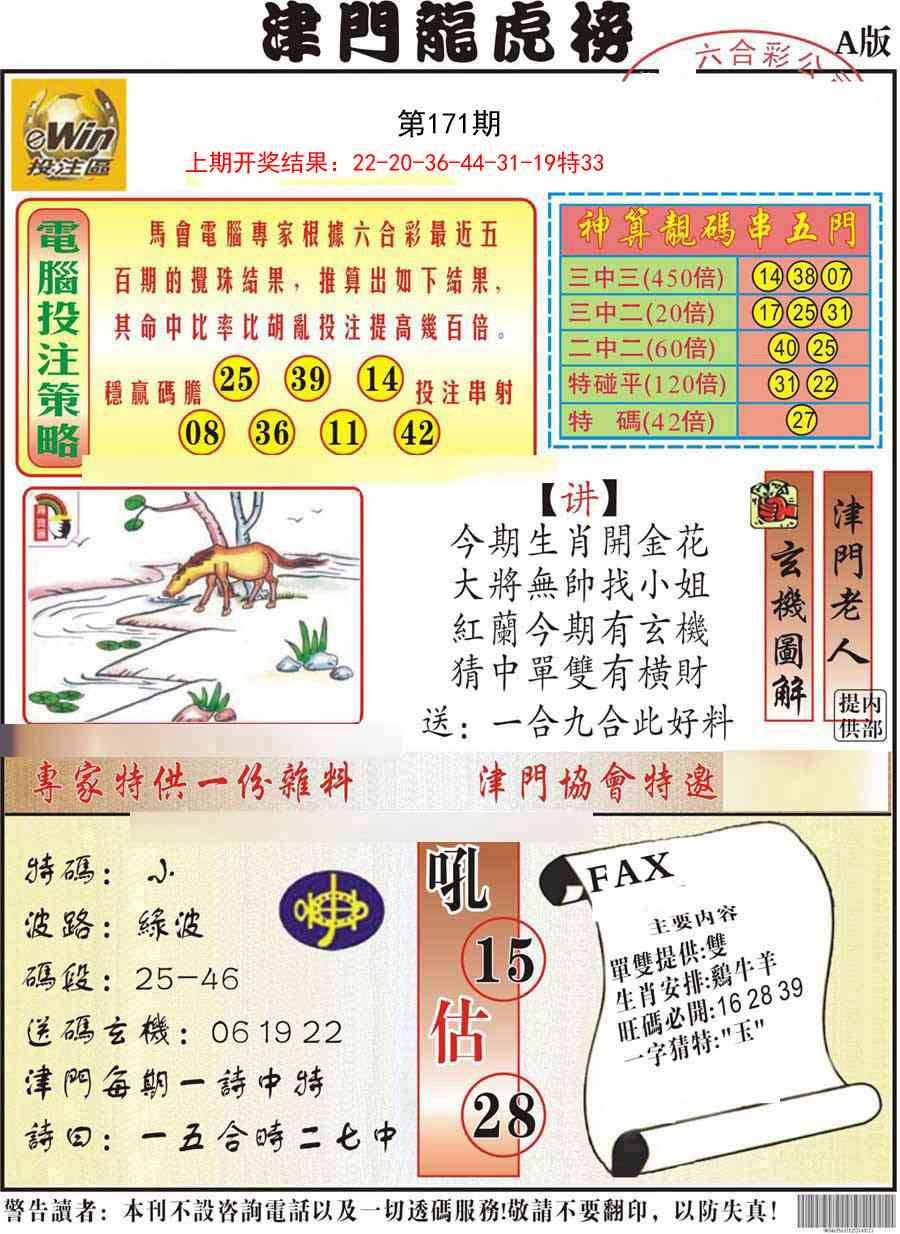 津門龍虎榜
A版
六合彩公
eWin
投注區
第171期
上期开奖结果：22-20-36-44-31-19特33
電腦投注策略
馬會電腦專家根據六合彩最近五
百期的攪珠結果，推算出如下結果，
其命中比率比胡亂投注提高幾百倍。
穩贏碼膽 25 39 14 投注串射
08 36 11 42
神算靚碼串五門
三中三(450倍) 14 38 07
三中二(20倍) 17 25 31
二中二(60倍) 40 25
特碰平(120倍) 31 22
特 碼(42倍) 27
【讲】
今期生肖開金花
大將無帥找小姐
紅蘭今期有玄機
猜中單雙有橫財
送：一合九合此好料
玄機圖解
津門老人
内部提供
專家特供一份雜料
津門協會特邀
特碼：小
波路：綠波
碼段：25-46
送碼玄機：06 19 22
津門每期一詩中特
詩曰：一五合時二七中
吼
15
估
28
FAX
主要内容
單雙提供:雙
生肖安排:鷄牛羊
旺碼必開:16 28 39
一字猜特:"玉"
警告讀者：本刊不設咨詢電話以及一切透碼服務!敬請不要翻印，以防失真!